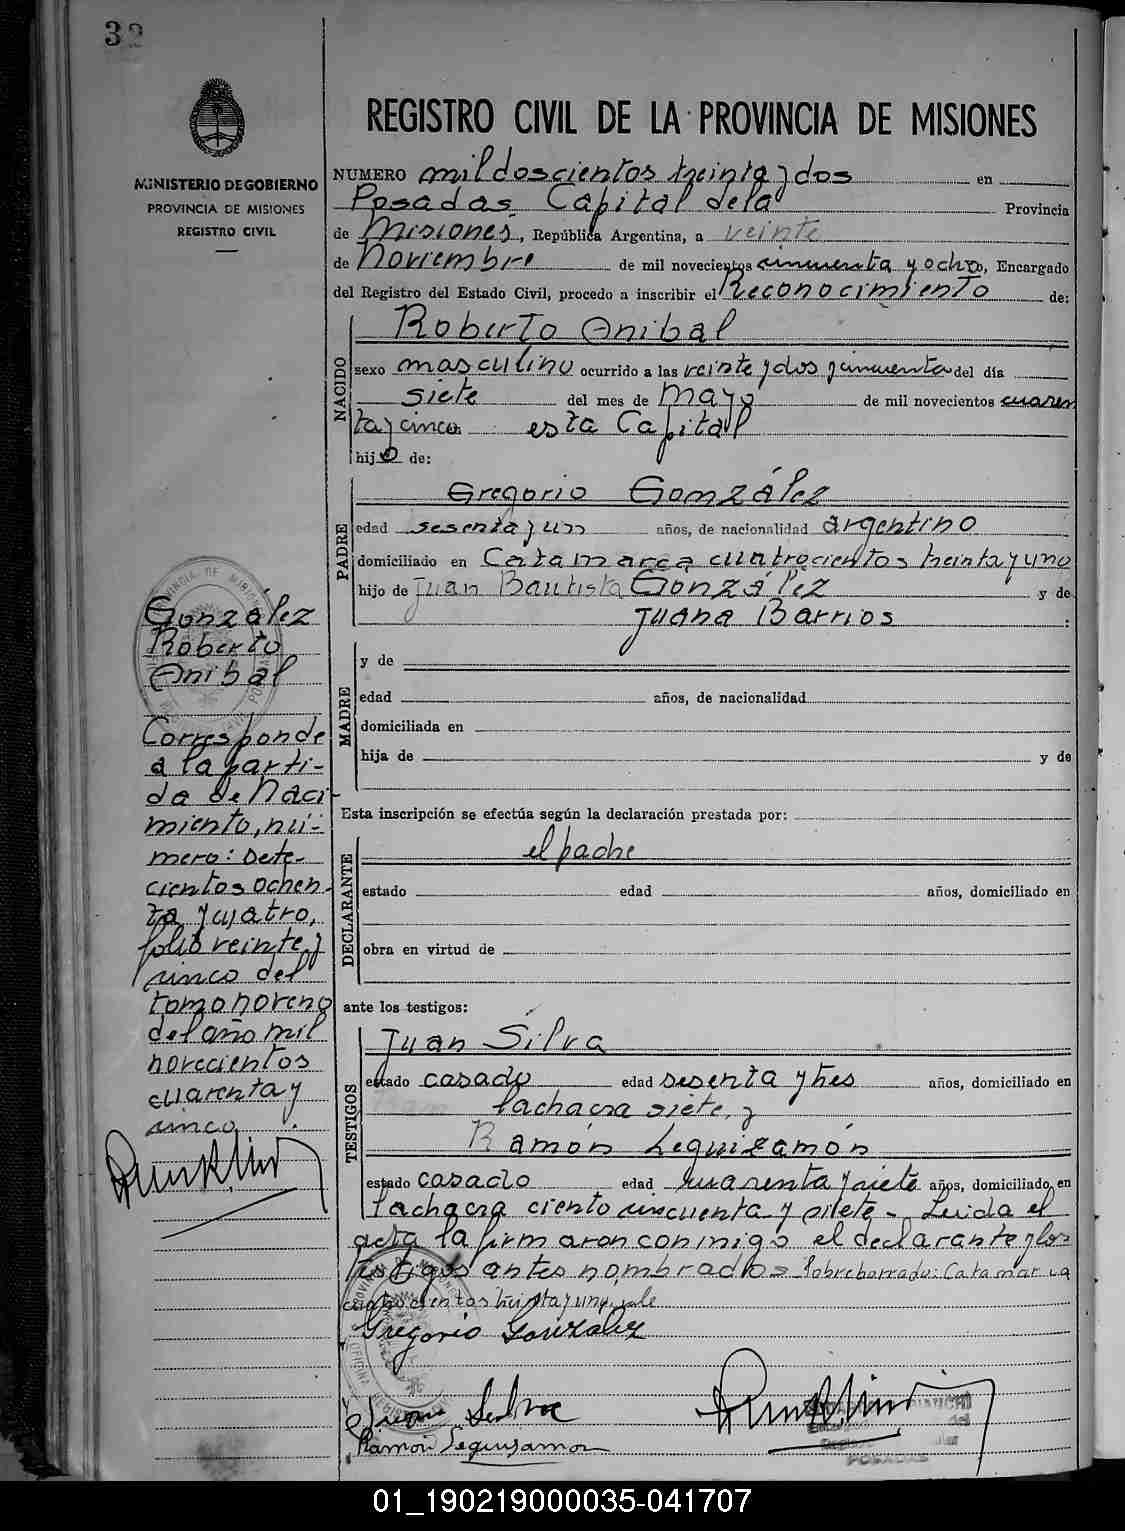 32
MINISTERIO DE GOBIERNO
PROVINCIA DE MISIONES
REGISTRO CIVIL
REGISTRO CIVIL DE LA PROVINCIA DE MISIONES
NUMERO mil doscientos treinta y dos en
Posadas, Capital de la Provincia
de Misiones, República Argentina, a veinte
de Noviembre de mil novecientos cincuenta y ocho, Encargado
del Registro del Estado Civil, procedo a inscribir el Reconocimiento de:
NACIDO
Roberto Anibal
sexo masculino ocurrido a las veinte y dos y cincuenta del día
siete del mes de Mayo de mil novecientos cuaren
ta y cinco esta Capital
hijo de:
PADRE
Gregorio González
edad sesenta y un años, de nacionalidad argentino
domiciliado en Catamarca cuatrocientos treinta y uno
hijo de Juan Bautista González y de
Juana Barrios :
MADRE
y de
edad años, de nacionalidad
domiciliada en
hija de y de
Esta inscripción se efectúa según la declaración prestada por:
DECLARANTE
el padre
estado edad años, domiciliado en
obra en virtud de
ante los testigos:
TESTIGOS
Juan Silva
estado casado edad sesenta y tres años, domiciliado en
la chacra siete, y
Ramón Leguizamón
estado casado edad cuarenta y siete años, domiciliado en
la chacra ciento cincuenta y siete.- Leida el
acta la firmaron conmigo el declarante y los
testigos antes nombrados Sobreborrado: Catamarca
cuatrocientos treinta y uno, vale
Gregorio González
Juan Silva
Ramon Leguisamon
POSADAS
González
Roberto
Anibal
Corresponde
a la parti-
da de Naci-
miento, nú-
mero: Sete-
cientos ochen-
ta y cuatro,
folio veinte y
cinco del
tomo noveno
del año mil
novecientos
cuarenta y
cinco.
01_190219000035-041707